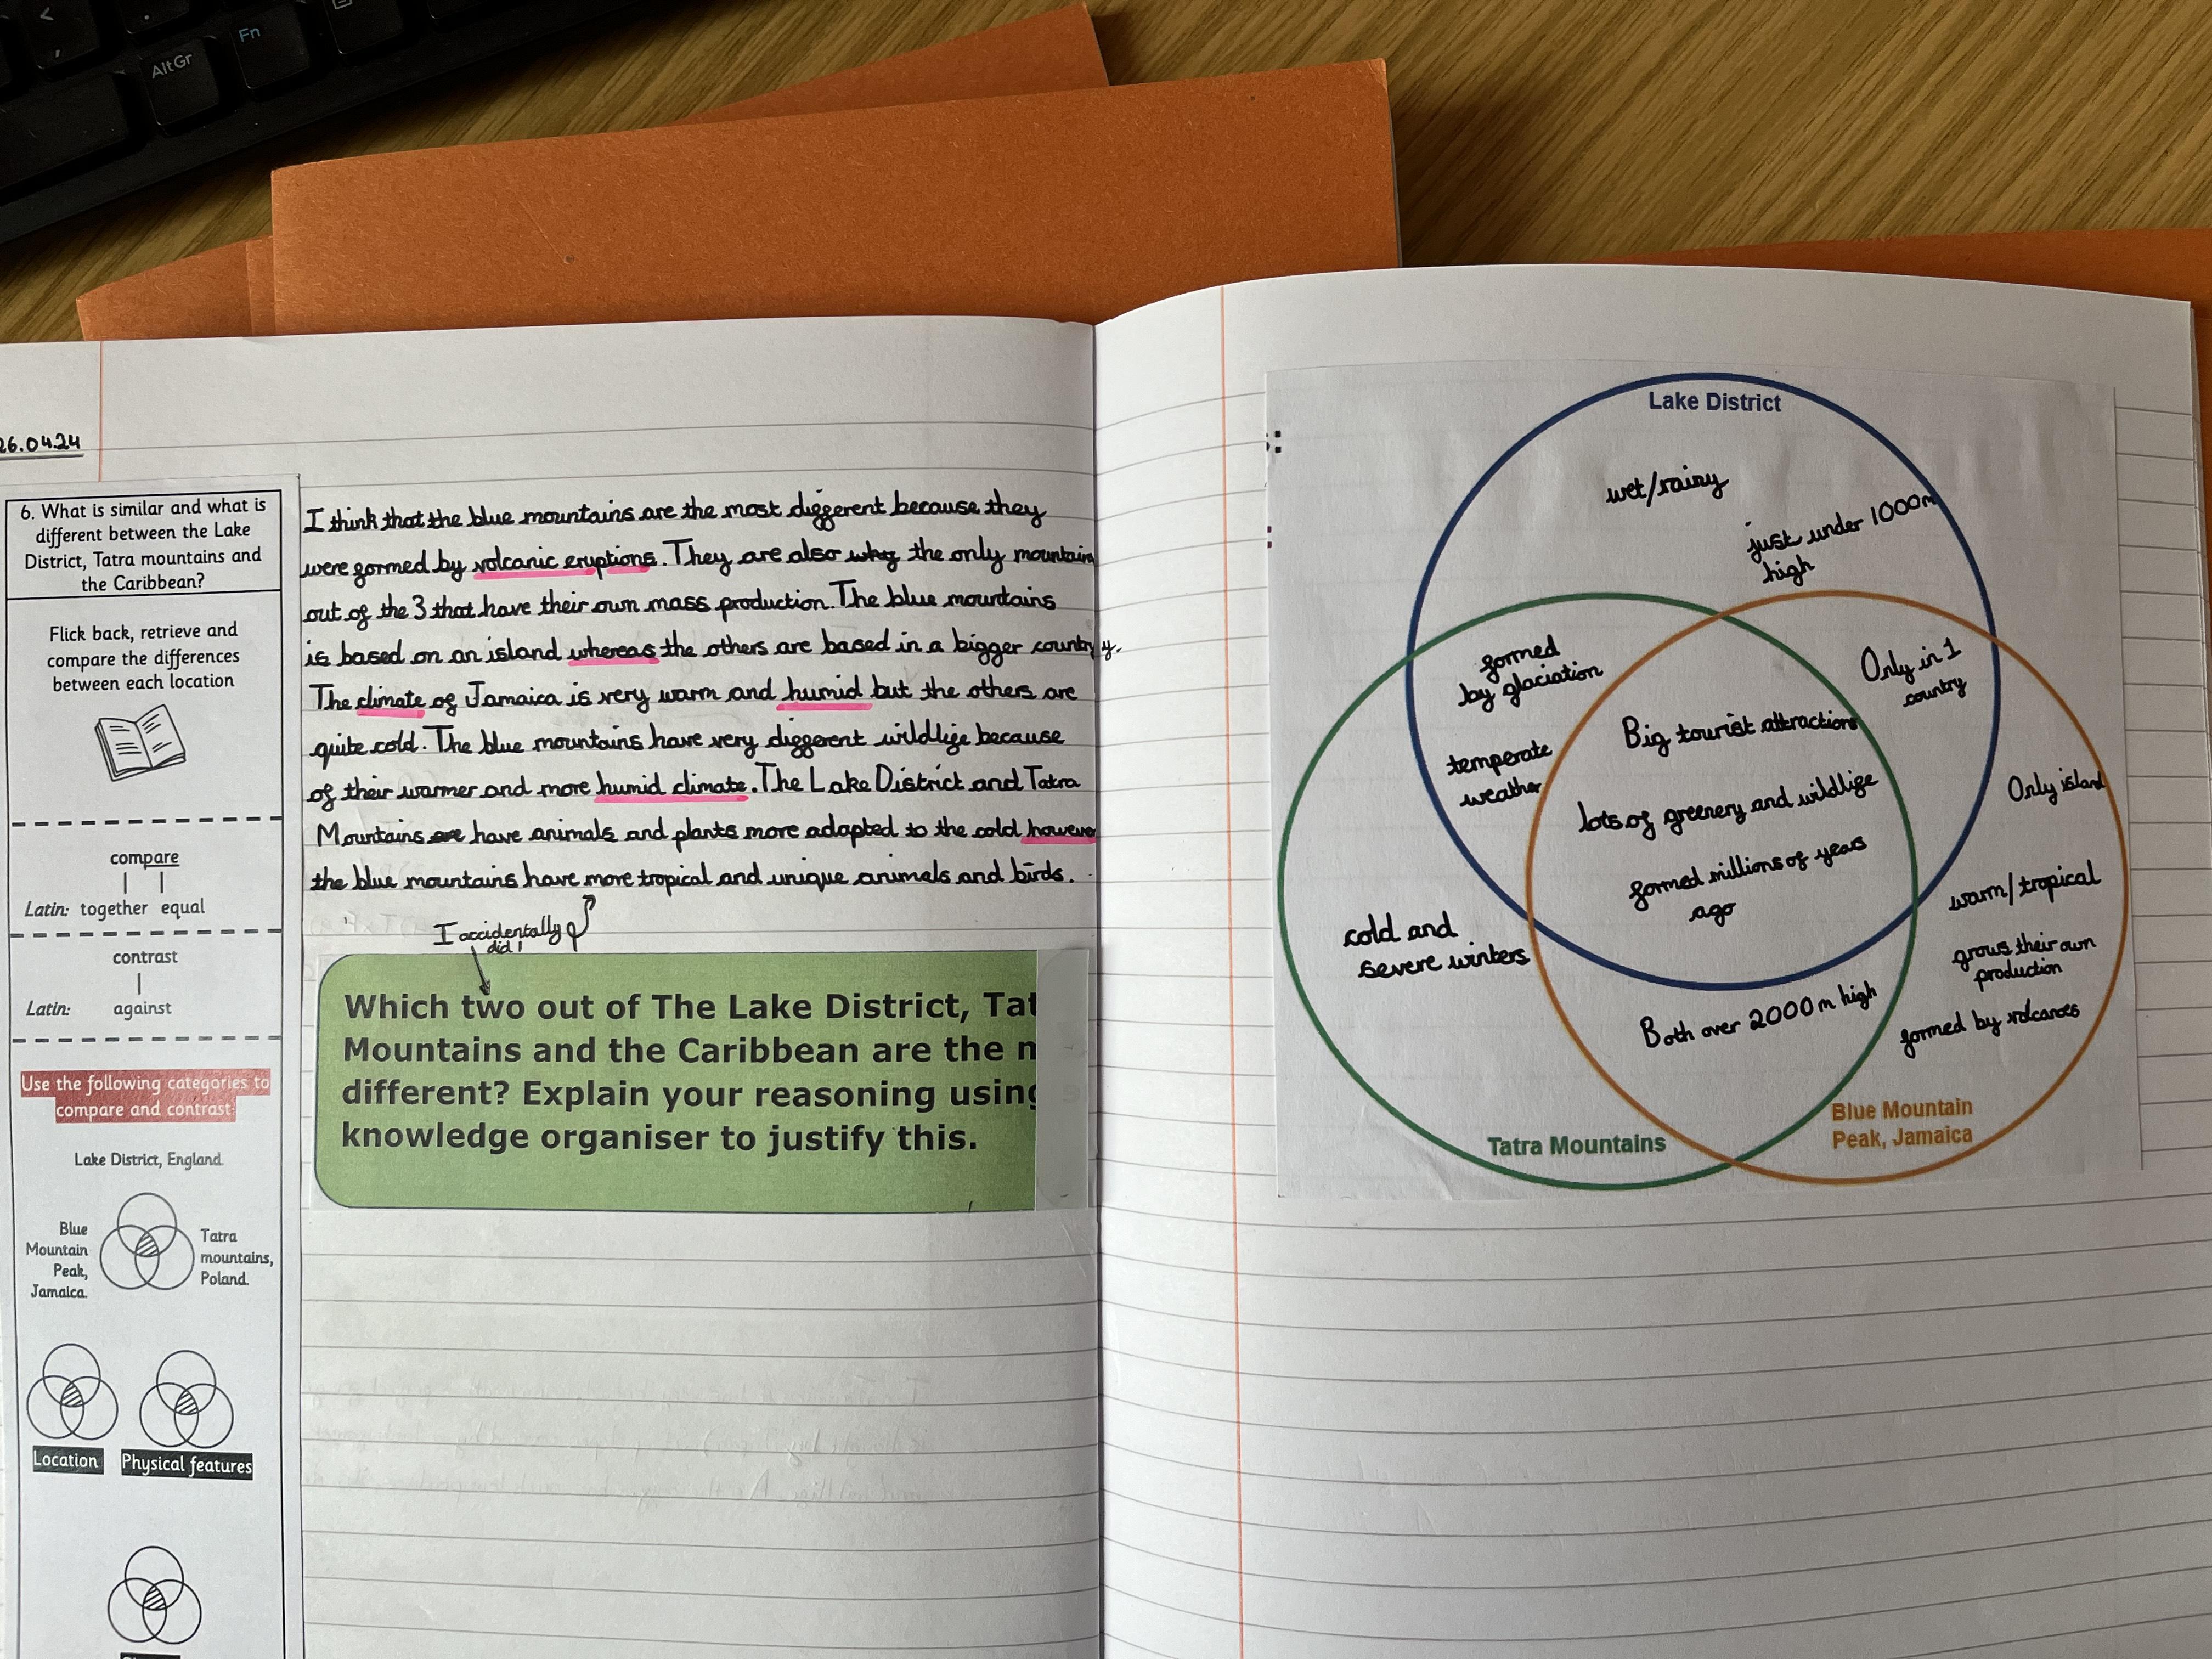 AltGr
Fn
26.04.24
6. What is similar and what is
different between the Lake
District, Tatra mountains and
the Caribbean?
Flick back, retrieve and
compare the differences
between each location
compare
Latin: together equal
contrast
Latin: against
Use the following categories to
compare and contrast:
Lake District, England.
Blue
Mountain
Peak,
Jamaica.
Tatra
mountains,
Poland.
Location
Physical features
I think that the blue mountains are the most different because they
were formed by volcanic eruptions. They are also why the only mountain
out of the 3 that have their own mass production. The blue mountains
is based on an island whereas the others are based in a bigger country.
The climate of Jamaica is very warm and humid but the others are
quite cold. The blue mountains have very different wildlife because
of their warmer and more humid climate. The Lake District and Tatra
Mountains are have animals and plants more adapted to the cold however
the blue mountains have more tropical and unique animals and birds.
I accidentally
did!
Which two out of The Lake District, Tat
Mountains and the Caribbean are the m
different? Explain your reasoning using
knowledge organiser to justify this.
Lake District
wet/rainy
just under 1000m
high
formed
by glaciation
temperate
weather
Only in 1
country
Big tourist attractions
lots of greenery and wildlife
formed millions of years
ago
Only island
warm/tropical
grows their own
production
formed by volcanoes
cold and
severe winters
Both over 2000m high
Tatra Mountains
Blue Mountain
Peak, Jamaica